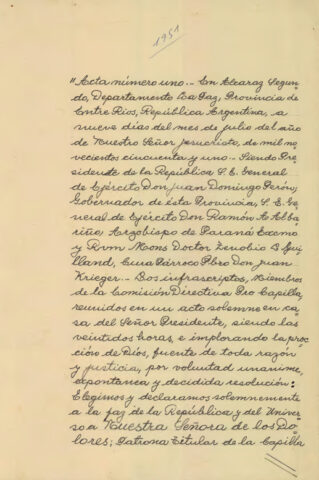 1951
"Acta número uno.- En Alcaraz Segun-
do, Departamento La Paz, Provincia de
Entre Ríos, República Argentina, a
nueve días del mes de julio del año
de Nuestro Señor Jesucristo, de mil no-
vecientos cincuenta y uno.- Siendo Pre-
sidente de la República S. E. General
de Ejército Don Juan Domingo Perón;
Gobernador de esta Provincia, S. E. Ge-
neral de Ejército Don Ramón A Alba-
riño; Arzobispo de Paraná Excmo
y Rvm Mons Doctor Zenobio L Gui-
lland, Cura Párroco Pbro Don Juan
Krieger.- Los infrascriptos, Miembros
de la Comisión Directiva Pro Capilla,
reunidos en un acto solemne en ca-
sa del Señor Presidente, siendo las
veintidos horas, e implorando la protec-
ción de Dios, fuente de toda razón
y justicia, por voluntad unanime,
espontanea y decidida resolución:
Elegimos y declaramos solemnemente
a la faz de la República y del Univer-
so a Nuestra Señora de los Do-
lores; Patrona Titular de la Capilla